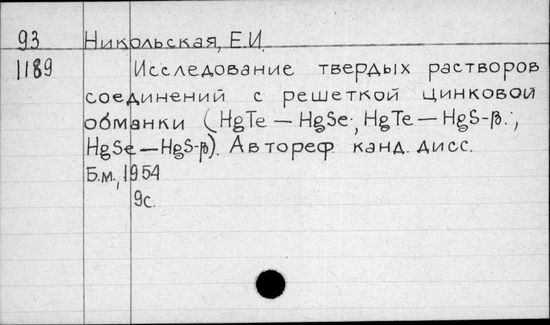 93 Никольская, Е.И.
1189 Исследование твердых растворов
соединений с решеткой цинковой
обманки (HgTe — HgSe, HgTe — HgS-β,
HgSe — HgS-β). Автореф канд. дисс.
Б.м., 1954
9с.